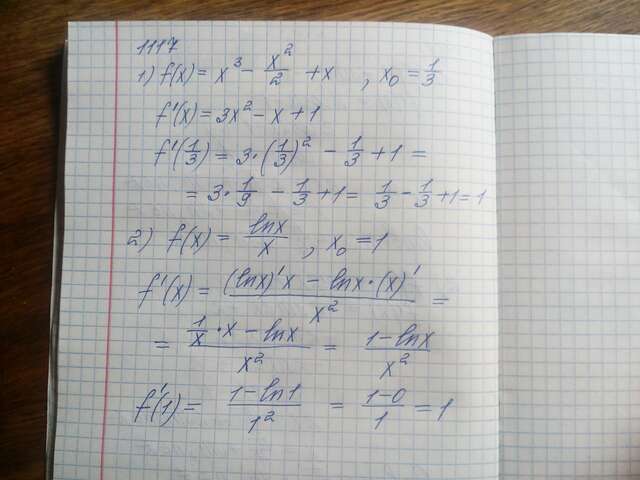 1117
1) f(x) = x³ - x²/2 + x , x₀ = 1/3
f'(x) = 3x² - x + 1
f'(1/3) = 3·(1/3)² - 1/3 + 1 =
= 3·1/9 - 1/3 + 1 = 1/3 - 1/3 + 1 = 1
2) f(x) = lnx/x , x₀ = 1
f'(x) = ((lnx)'x - lnx·(x)')/x² =
= (1/x·x - lnx)/x² = (1 - lnx)/x²
f'(1) = (1 - ln1)/1² = (1-0)/1 = 1